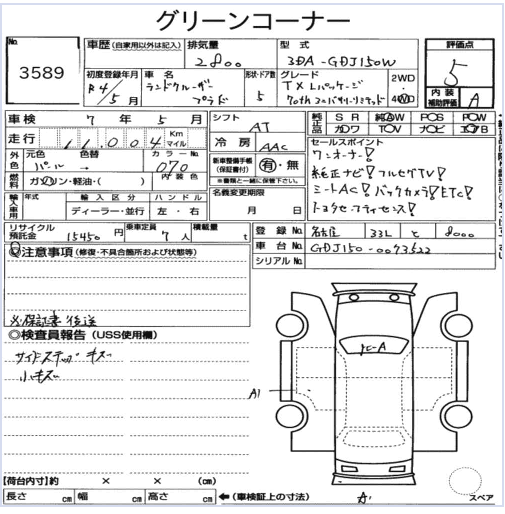 グリーンコーナー
No. 3589
車歴 (自家用以外は記入)
排気量 2800
型式 3DA-GDJ150W
評価点 5
内装補助評価 A
初度登録年月 R4/5月
車名 ランドクルーザープラド
形状・ドア数 5
グレード TXLパッケージ 70th
2WD・4WD
車検 7年5月
走行 11,004 Km マイル
シフト AT
冷房 AAC
純正品 SR 純AW PCS PCW
カワ TV ナビ エアB
外色 元色 パール 色替 → カラーNo. 070
燃料 ガソリン・軽油・( ) 内装色
新車整備手帳(保証書付) 有・無
※書類と一緒に保管下さい。
輸入車用 年式 輸入区分 ハンドル
ディーラー・並行 左・右
名義変更期限
月 日
セールスポイント
ワンオーナー!
純正ナビ!フルセグTV!
シートAC!バックカメラ!ETC!
トヨタセーフティセンス!
リサイクル預託金 15450円 乗車定員 7人 積載量 t
登録No. 名古屋 33L と 8000
車台No. GDJ150-0073522
シリアルNo.
◎注意事項 (修復・不具合箇所および状態等)
※保証書後送
◎検査員報告 (USS使用欄)
サイドステップキズ
小キズ
A1
A
【荷台内寸】約 × × (cm)
長さ cm 幅 cm 高さ cm ←(車検証上の寸法)
スペア